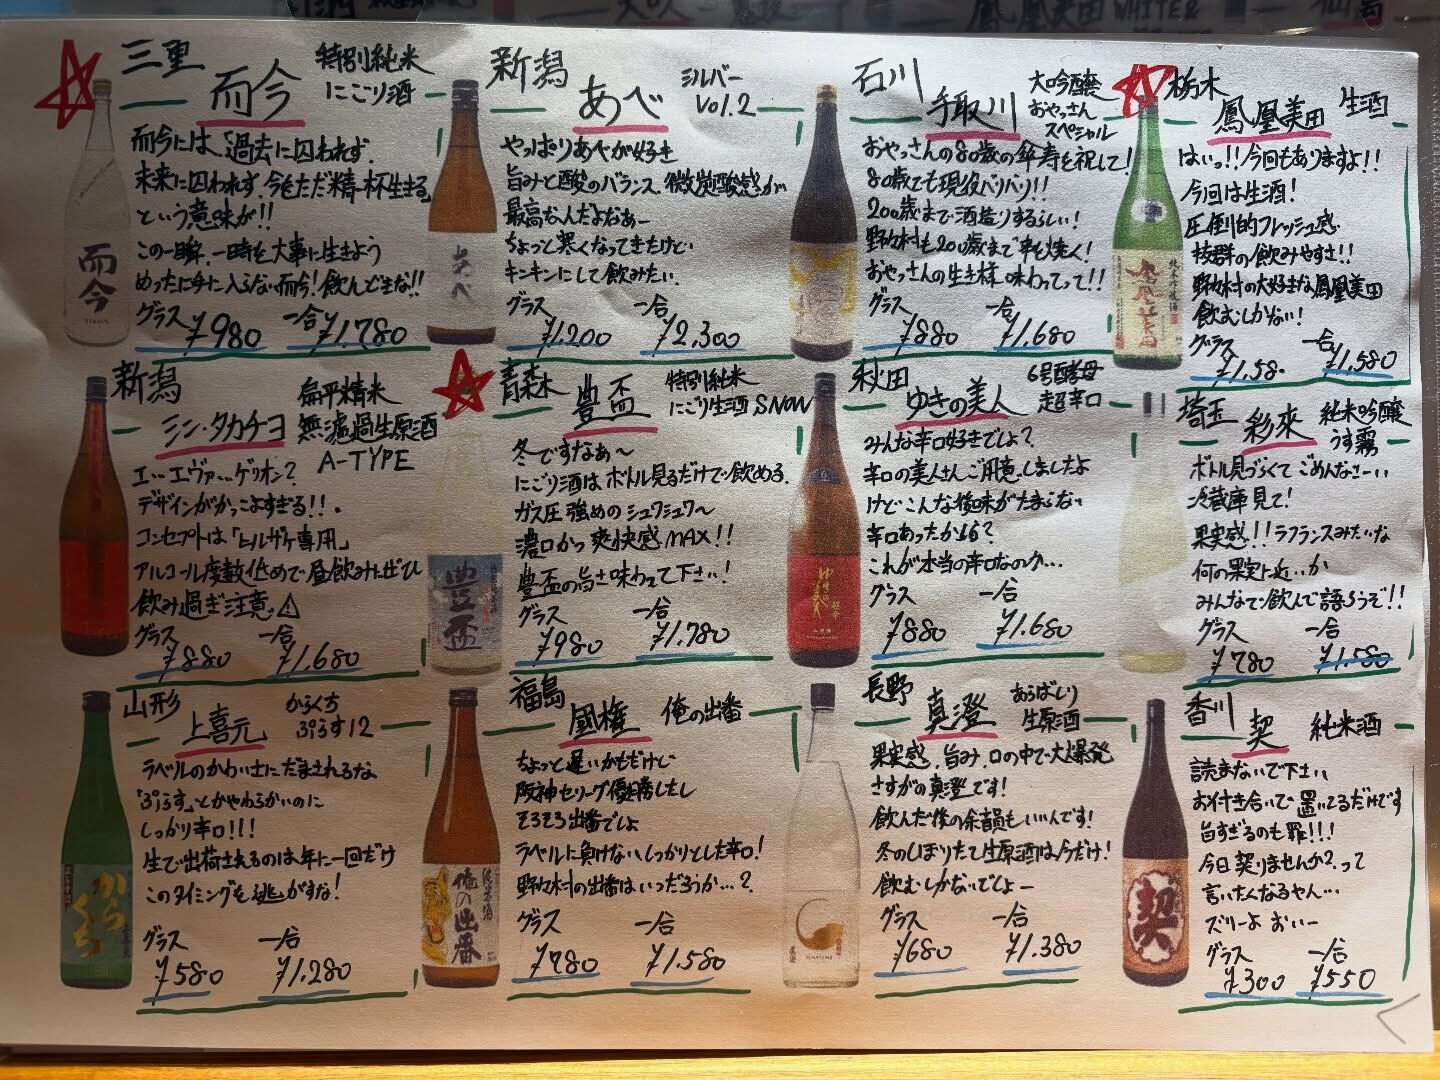 三重
而今
特別純米
にごり酒
而今には、「過去に囚われず、
未来に囚われず、今をただ精一杯生きる」
という意味が!!
この一瞬、一時を大事に生きよう
めったに手に入らない而今!飲んどきな!!
グラス ¥980 一合 ¥1,780
新潟
あべ
シルバー
Vol.2
やっぱりあべが好き
旨みと酸のバランス、微炭酸感が
最高なんだよなあー
ちょっと寒くなってきたけど
キンキンにして飲みたい。
グラス ¥1,200 一合 ¥2,300
石川
手取川
大吟醸
おやっさん
スペシャル
おやっさんの80歳の傘寿を祝して!
80歳でも現役バリバリ!!
200歳まで酒造りするらしい!
野々村も200歳まで串を焼く!
おやっさんの生き様、味わってって!!
グラス ¥880 一合 ¥1,680
栃木
鳳凰美田
生酒
はいっ!!今回もありますよ!!
今回は生酒!
圧倒的フレッシュ感
抜群の飲みやすさ!!
野々村の大好きな鳳凰美田
飲むしかない!
グラス ¥1,58- 一合 ¥1,580
新潟
シン・タカチヨ
扁平精米
無濾過生原酒
A-TYPE
エ…エヴァ…ゲリオン?
デザインがかっこよすぎる!!。
コンセプトは「ヒルザケ専用」
アルコール度数低めで昼飲みにぜひ
飲み過ぎ注意⚠
グラス ¥880 一合 ¥1,680
青森
豊盃
特別純米
にごり生酒 SNOW
冬ですなぁ〜
にごり酒はボトル見るだけで飲める。
ガス圧強めのシュワシュワ〜
濃口かつ爽快感MAX!!
豊盃の旨さ味わって下さい!
グラス ¥980 一合 ¥1,780
秋田
ゆきの美人
6号酵母
超辛口
みんな辛口好きでしょ?
辛口の美人さんご用意しましたよ
けどこんな後味がたまらない
辛口あったかしら?
これが本当の辛口なのか…
グラス ¥880 一合 ¥1,680
埼玉
彩來
純米吟醸
うす霧
ボトル見づらくてごめんなさーいい
冷蔵庫見て!
果実感!!ラフランスみたいな
何の果実に近いか
みんなで飲んで語ろうぞ!!
グラス ¥780 一合 ¥1,580
山形
上喜元
からくち
ぷらす12
ラベルのかわいさにだまされるな
「ぷらす」とかやわらかいのに
しっかり辛口!!!
生で出荷されるのは年に一回だけ
このタイミングを逃がすな!
グラス ¥580 一合 ¥1,280
福島
國権
俺の出番
ちょっと遅いかもだけど
阪神セリーグ優勝したし
そろそろ出番でしょ
ラベルに負けないしっかりとした辛口!
野々村の出番はいつだろうか…?
グラス ¥780 一合 ¥1,580
長野
真澄
あらばしり
生原酒
果実感、旨み、口の中で大爆発
さすがの真澄です!
飲んだ後の余韻もいいんです!
冬のしぼりたて生原酒は今だけ!
飲むしかないでしょー
グラス ¥680 一合 ¥1,380
香川
契
純米酒
読まないで下さい
お付き合いで置いてるだけです
旨すぎるのも罪!!!
今日契りませんか?って
言いたくなるやん…
ズリーよ おいー
グラス ¥300 一合 ¥550
而今
あべ
豊盃
ゆきの美人
からくち
俺の出番
契